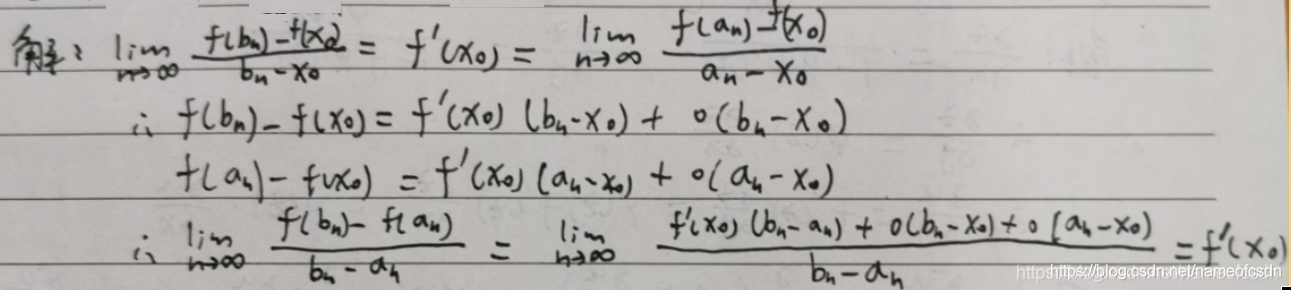 解: lim n→∞ f(bn)-f(x₀) / bn-x₀ = f'(x₀) = lim n→∞ f(an)-f(x₀) / an-x₀
∴ f(bn)-f(x₀) = f'(x₀) (bn-x₀) + o(bn-x₀)
f(an)-f(x₀) = f'(x₀) (an-x₀) + o(an-x₀)
∴ lim n→∞ f(bn)-f(an) / bn-an = lim n→∞ f'(x₀) (bn-an) + o(bn-x₀) + o(an-x₀) / bn-an = f'(x₀)
https://blog.csdn.net/nameofcsdn